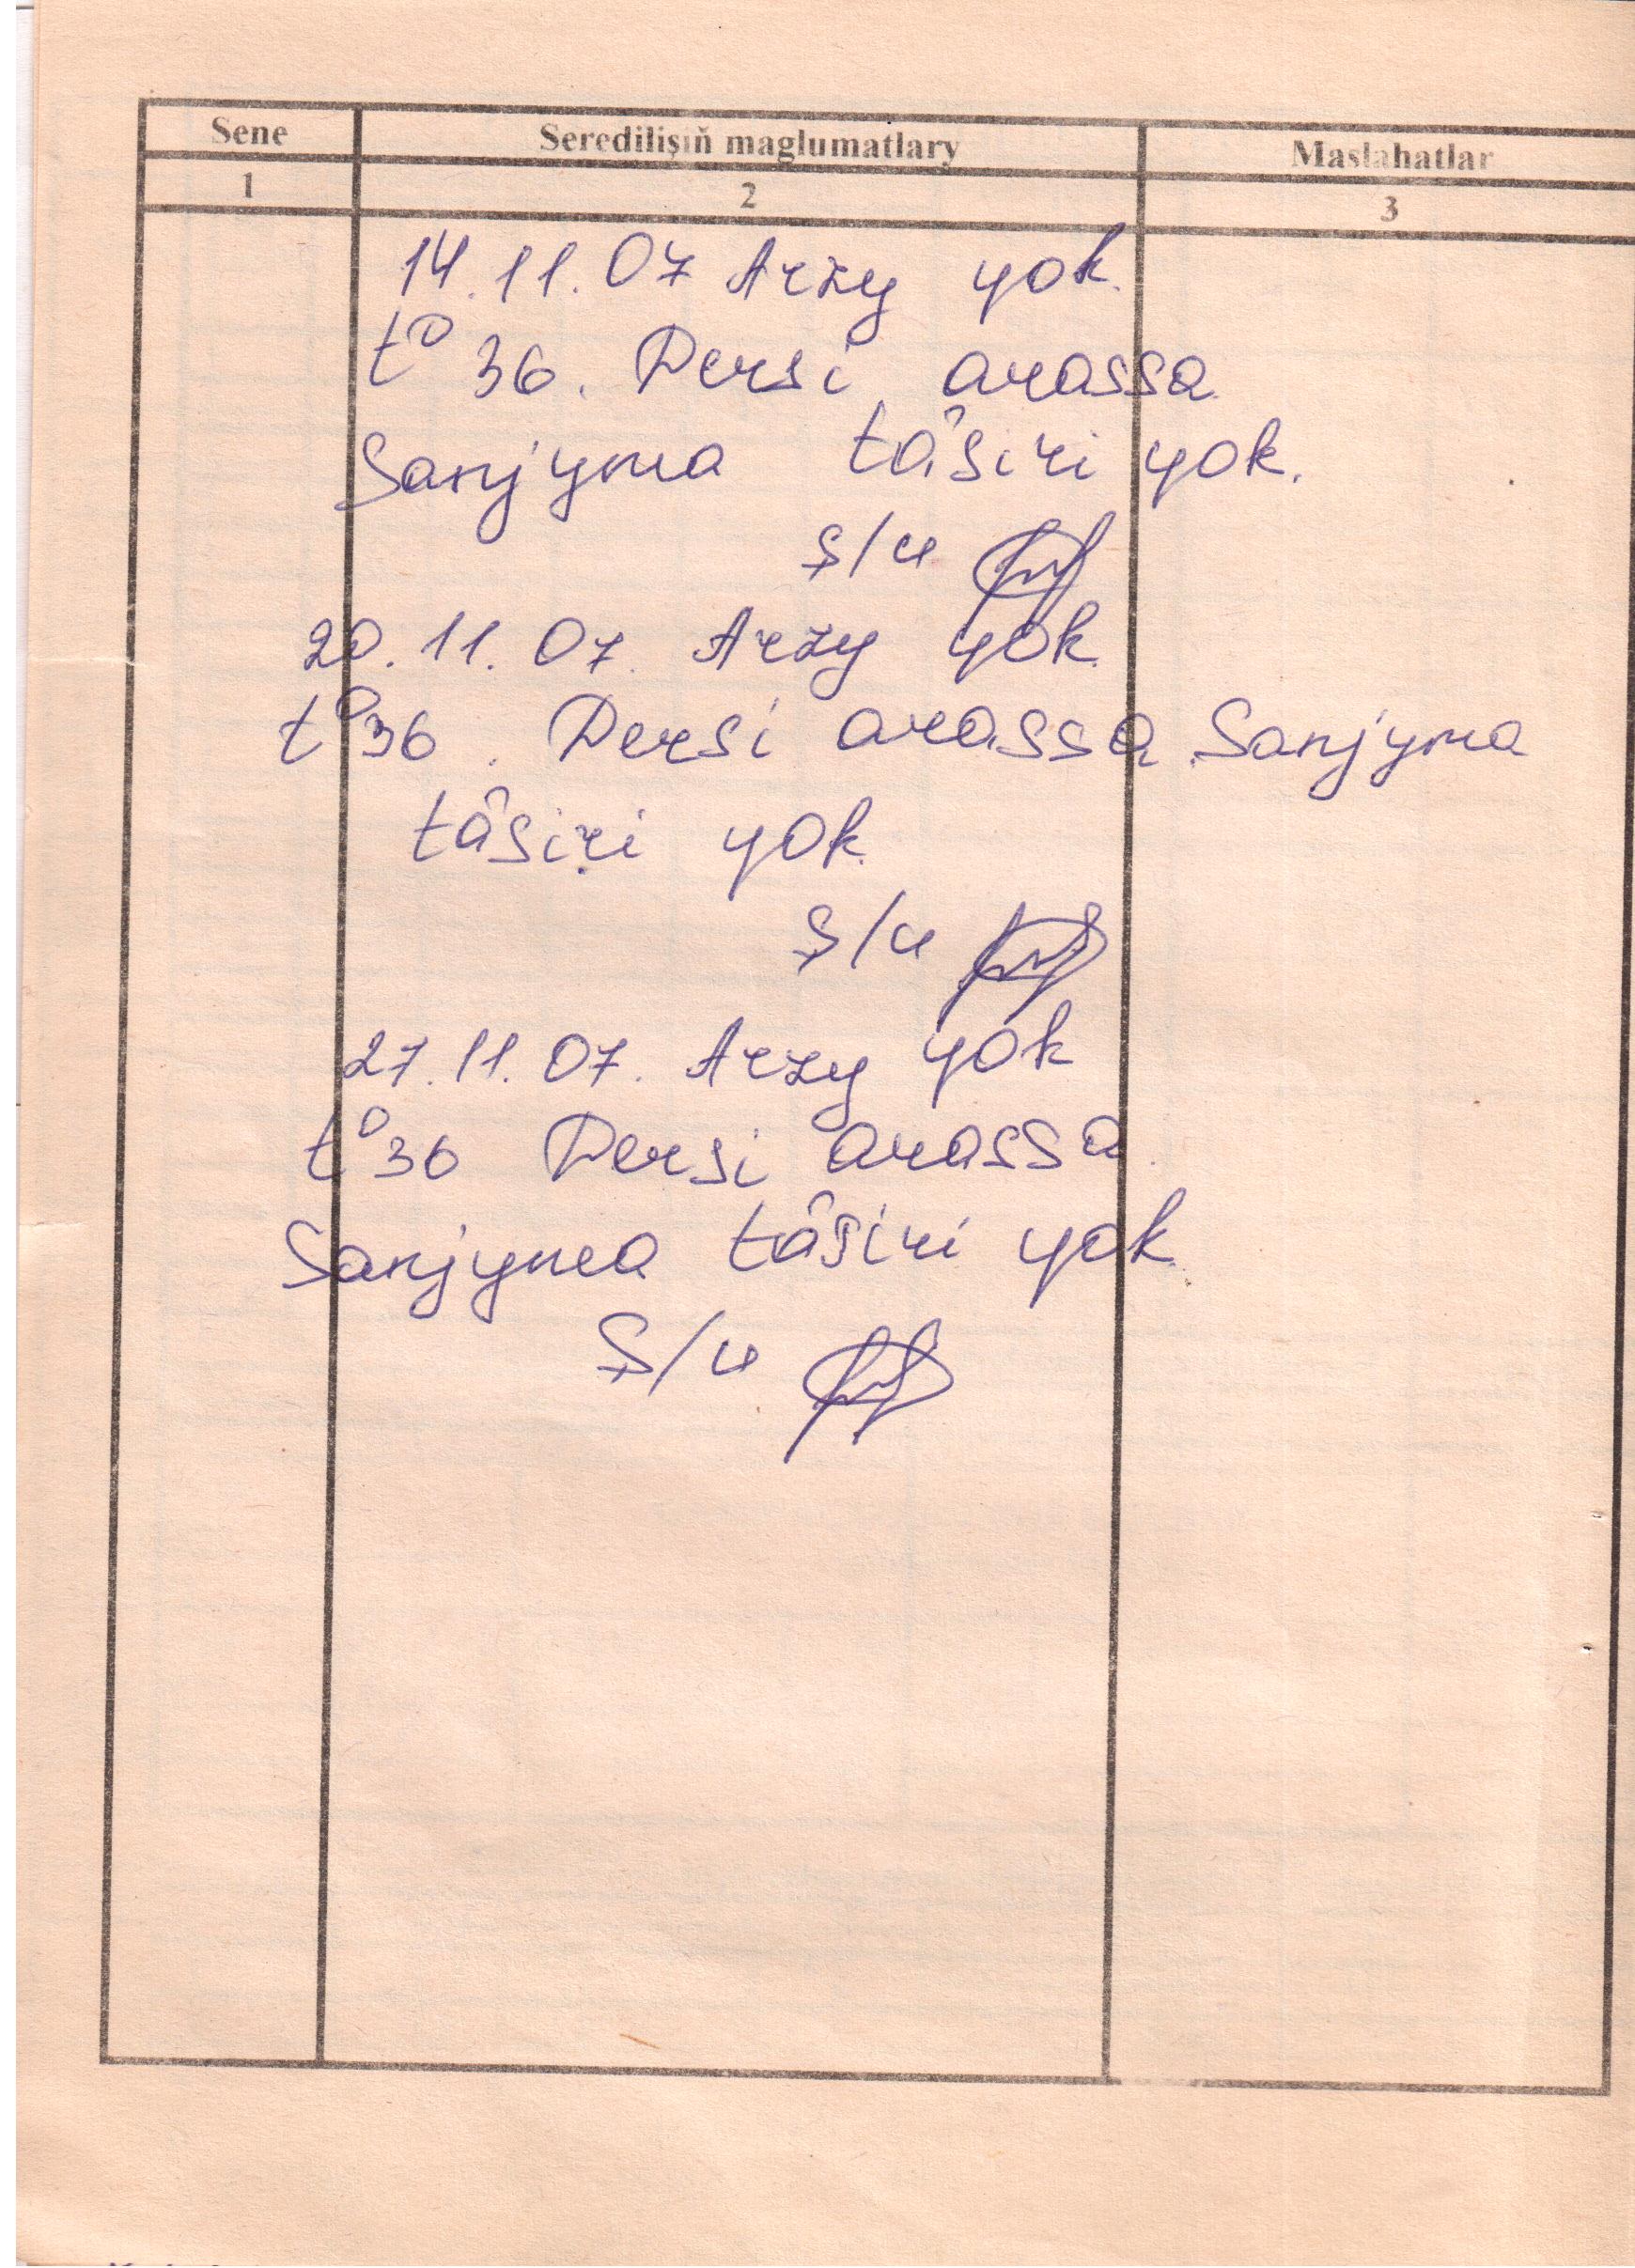 Sene Seredilişiň maglumatlary Maslahatlar
1 2 3
14.11.07 Arzy yok.
t° 36. Dersi arassa
Sanjyma täsiri yok.
ş/u
20.11.07. Arzy yok
t° 36. Dersi arassa Sanjyma
täsiri yok
Ş/u
27.11.07. Arzy yok
t° 36 Dersi arassa.
Sanjyma täsiri yok
Ş/u